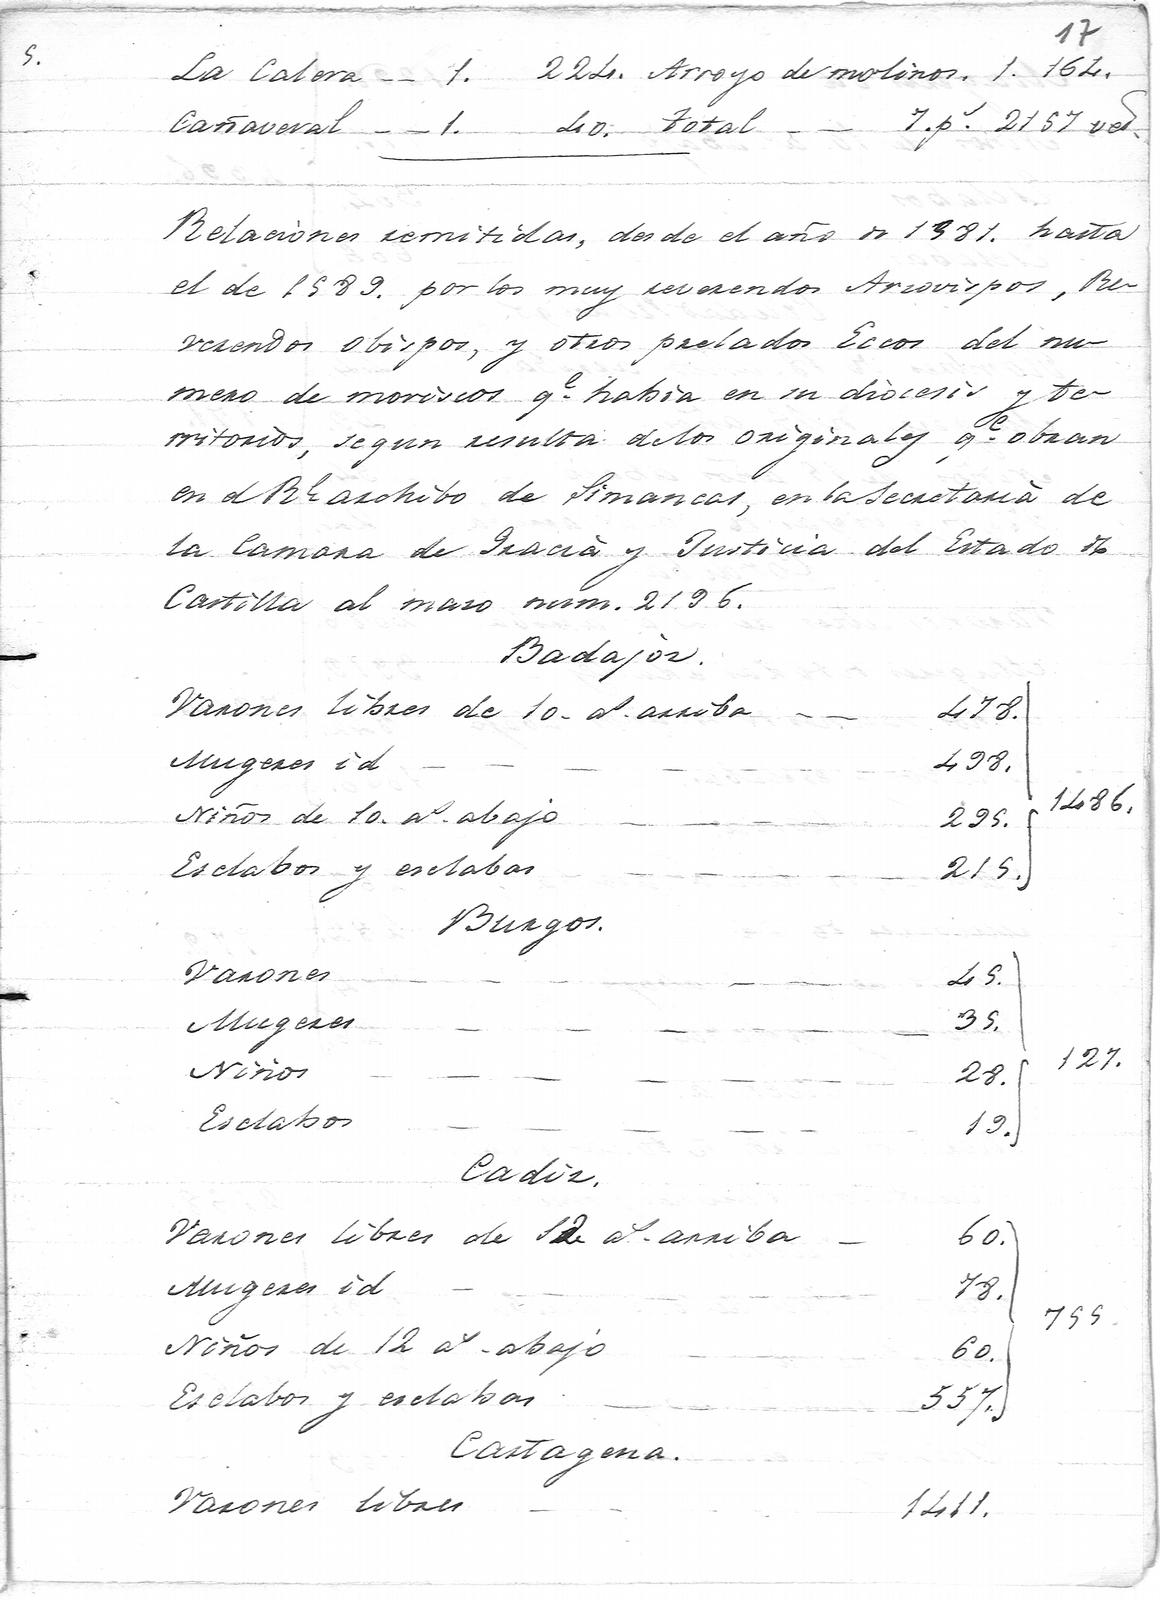 17
S.
La Calera -- 1. 224. Arroyo de molinos. 1. 164.
Cañaveral -- 1. 40. total -- 7. pˢ. 2157 veˢ.
Relaciones remitidas, desde el año de 1581. hasta
el de 1589. por los muy reverendos Arzovispos, Re-
verendos obispos, y otros prelados Eccos del nu-
mero de moriscos qᵉ habia en su diocesis y te-
rritorios, segun resulta de los originales qᵉ obran
en el Rˡ archibo de Simancas, en la Secretaria de
la Camara de Gracia y Justicia del Estado de
Castilla al mazo num. 2196.
Badajòz.
Varones libres de 10. aˢ. arriba -- 478.
Mugeres id - - - - - - 498.
1486.
Niños de 10. aˢ. abajo - - - - 295.
Esclabos y esclabas - - - - 215.
Burgos.
Varones - - - - - 45.
Mugeres - - - - - 35.
127.
Niños - - - - - - 28.
Esclabos - - - - - 19.
Cadiz.
Varones libres de 12 aˢ. arriba - 60.
Mugeres id - - - - - 78.
755.
Niños de 12 aˢ. abajo - - - 60.
Esclabos y esclabas - - - 557.
Cartagena.
Varones libres - - - 1411.